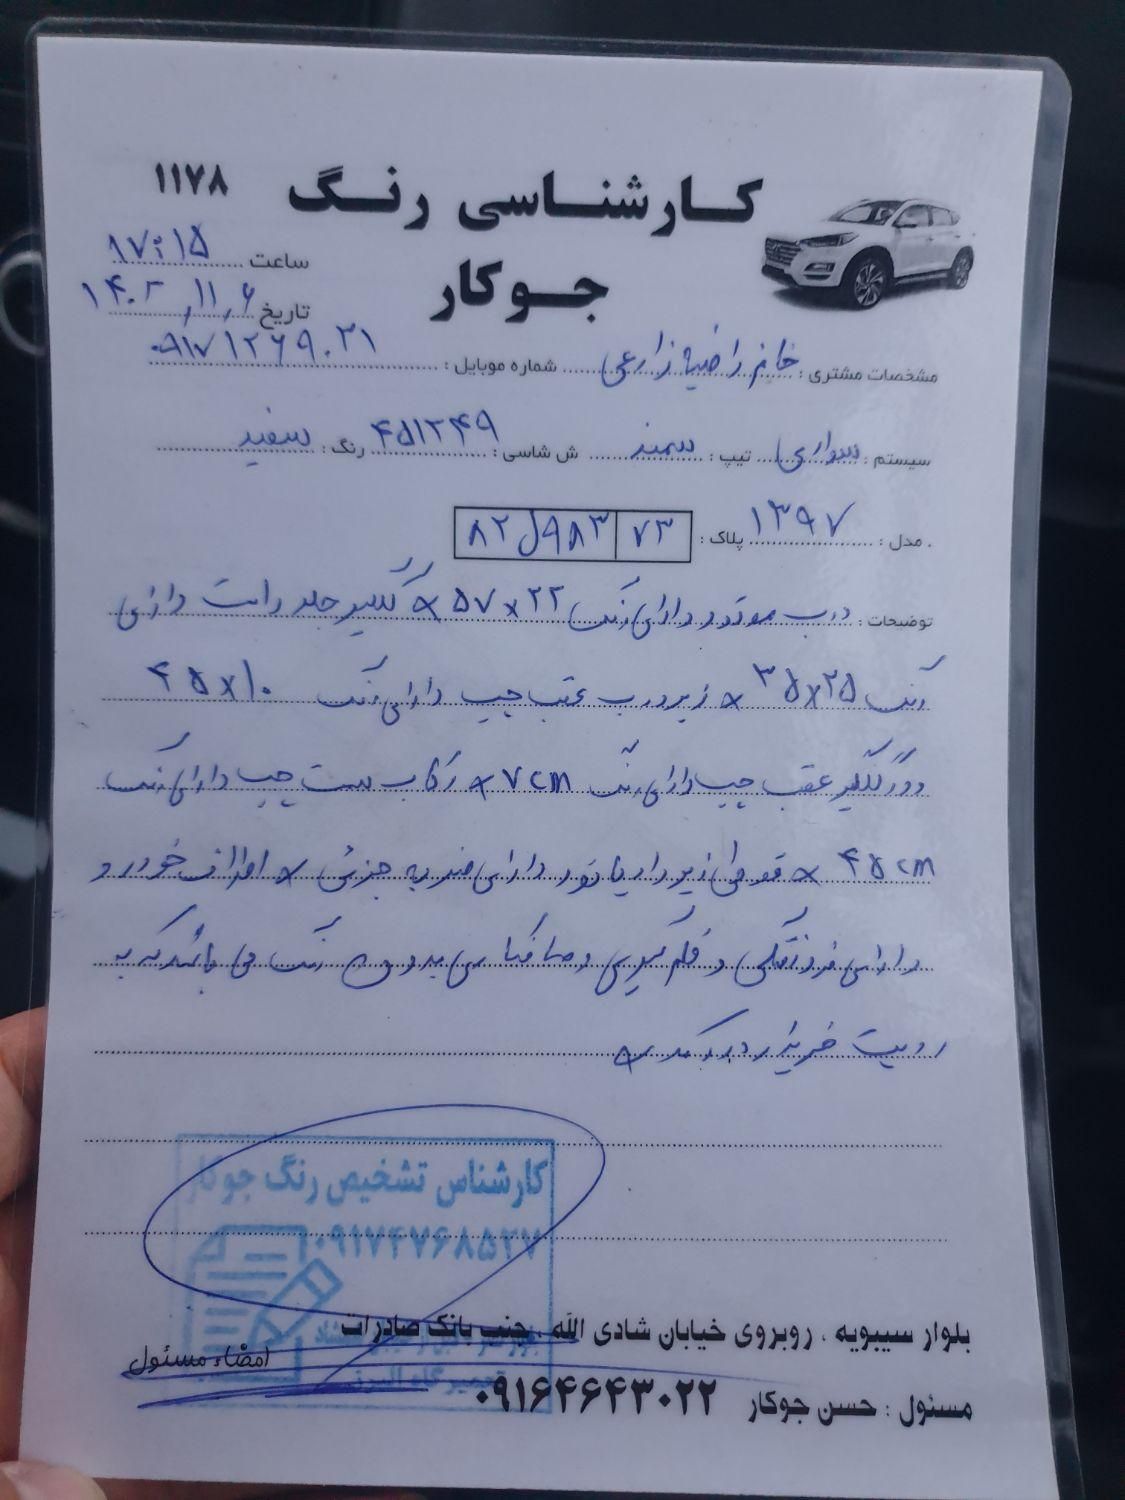 کارشناسی رنگ
۱۱۷۸
جوکار
ساعت ۱۷:۱۵
تاریخ ۱۴۰۲,۱۱,۶
مشخصات مشتری : خانم راضیه زارعی شماره موبایل : ۰۹۱۷۱۲۶۹۰۳۱
سیستم : سواری تیپ : سمند ش شاسی : ۴۵۱۲۴۹ رنگ : سفید
مدل : ۱۳۹۷ پلاک : ۸۲ل۹۸۳ ۷۳
توضیحات : درب موتور دارای رنگ ۲۲×۵۷ * گلگیر جلو راست دارای
رنگ ۲۵×۳۵ * زیر درب عقب چپ دارای رنگ ۱۰×۴۵
دور گلگیر عقب چپ دارای رنگ ۷cm * رکاب سمت چپ دارای رنگ
۴۵cm * قوطی زیر رادیاتور دارای ضربه جزئی * اطراف خودرو
دارای فرورفتگی و قلم گیری و صافکاری بدون رنگ می باشد که به
رویت خریدار رسیده است
کارشناس تشخیص رنگ جوکار
۰۹۱۷۴۷۶۸۵۲۷
بلوار سیبویه ، روبروی خیابان شادی الله ، جنب بانک صادرات
امضاء مسئول
تعمیرگاه البرز
مسئول : حسن جوکار ۰۹۱۶۴۶۴۳۰۲۲